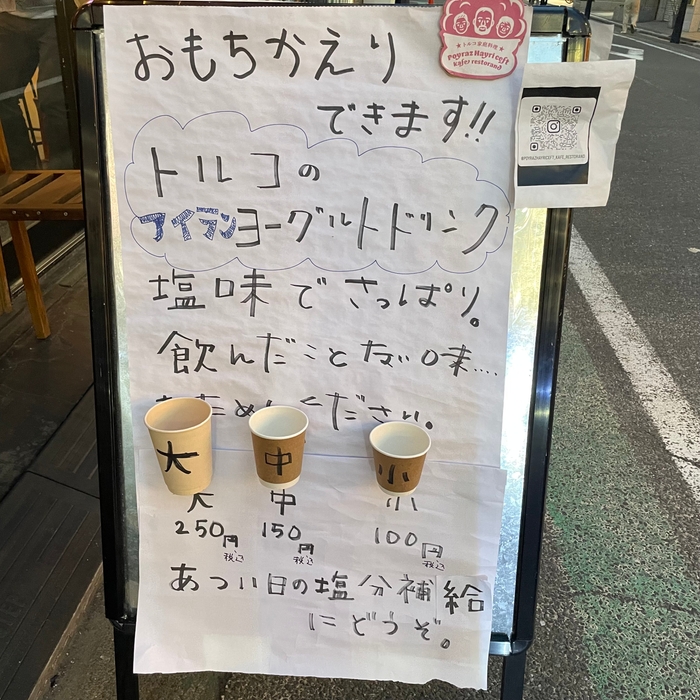 おもちかえり
できます!!
★トルコ家庭料理★
Poyraz Hayri Çeşit
Kafes restorand
トルコの
アイランヨーグルトドリンク
塩味でさっぱり。
飲んだことない味....
ください。
大 中 小
大 中 小
250円 150円 100円
税込 税込 税込
あつい日の塩分補給
にどうぞ。